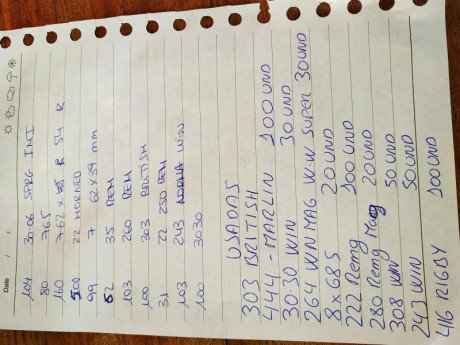 Date / /
104 30-06 SPRG IMI
80 765
160 7-62 x R 54 R
500 22 HORNED
99 7 62x39 mm
62 35 REM
103 260 REM
100 303 BRITISH
31 22 250 REM
103 243 WIN
100 3030
USADAS
303 BRITISH
444 - MARLIN 100 UND
30-30 WIN 30 UND
264 WN MAG W-W SUPER 30 UND
8x68S 20 UND
222 Remg 100 UND
280 Remg 20 UND
308 WIN 50 UND
243 WIN 50 UND
416 RIGBY 100 UND